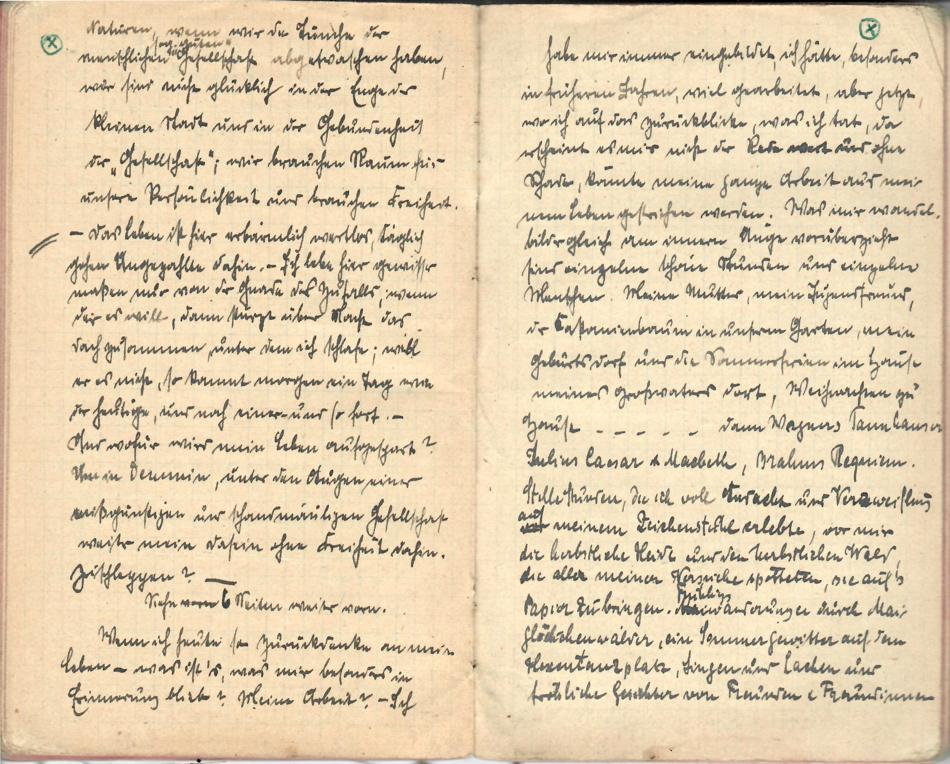 Naturen, wenn wir die Tünche der
sog. „guten"
menschlichen Gesellschaft abgewaschen haben,
wir sind nicht glücklich in der Enge der
kleinen Stadt und in der Gebundenheit
der „Gesellschaft"; wir brauchen Raum für
unsere Persönlichkeit und brauchen Freiheit.
– Das Leben ist hier erbärmlich wertlos, täglich
gehen Ungezählte dahin. – Ich lebe hier gewisser
maßen nur von der Gnade des Zufalls; wenn
der es will, dann stürzt über Nacht das
Dach zusammen, unter dem ich schlafe; will
er es nicht, so kommt morgen ein Tag wie
der heutige, und noch einer und so fort. –
Und wofür wird mein Leben aufgespart?
Um in Demmin, unter den Augen einer
mißgünstigen und schandmäuligen Gesellschaft
weiter mein Dasein ohne Freiheit dahin-
zuschleppen? —
Siehe vorn 6 Seiten weiter vorn.
Wenn ich heute so zurückdenke an mein
Leben – was ist's, was mir besonders in
Erinnerung blieb? Meine Arbeit? – Ich
habe mir immer eingebildet ich hätte, besonders
in früheren Jahren, viel gearbeitet, aber jetzt,
wo ich auf das zurückblicke, was ich tat, da
erscheint es mir nicht der Rede wert und ohne
Schade, könnte meine ganze Arbeit aus mei-
nem Leben gestrichen werden. Was mir wandel-
bildergleich am innern Auge vorüberzieht
sind einzelne schöne Stunden und einzelne
Menschen. Meine Mutter, mein Jugendfreund,
der Kastanienbaum in unserm Garten, mein
Geburtsdorf und die Sommerferien im Hause
meines Großvaters dort, Weihnachten zu
Hause – – – – – dann Wagners Tannhäuser
Julius Caesar & Macbeth, Brahms Requiem.
Stille Stunden, die ich voll Andacht und Verzweiflung
auf
meinem Zeichenstuhl erlebte, vor mir
die herbstliche Heide und den herbstlichen Wald,
die aller meiner Versuche spotteten, sie auf's
Papier zu bringen. Frühlings
wanderungen durch Mai-
glöckchenwälder, ein Sommergewitter auf dem
Hexentanzplatz, Singen und Lachen und
fröhliche Gesichter von Freunden & Freundinnen